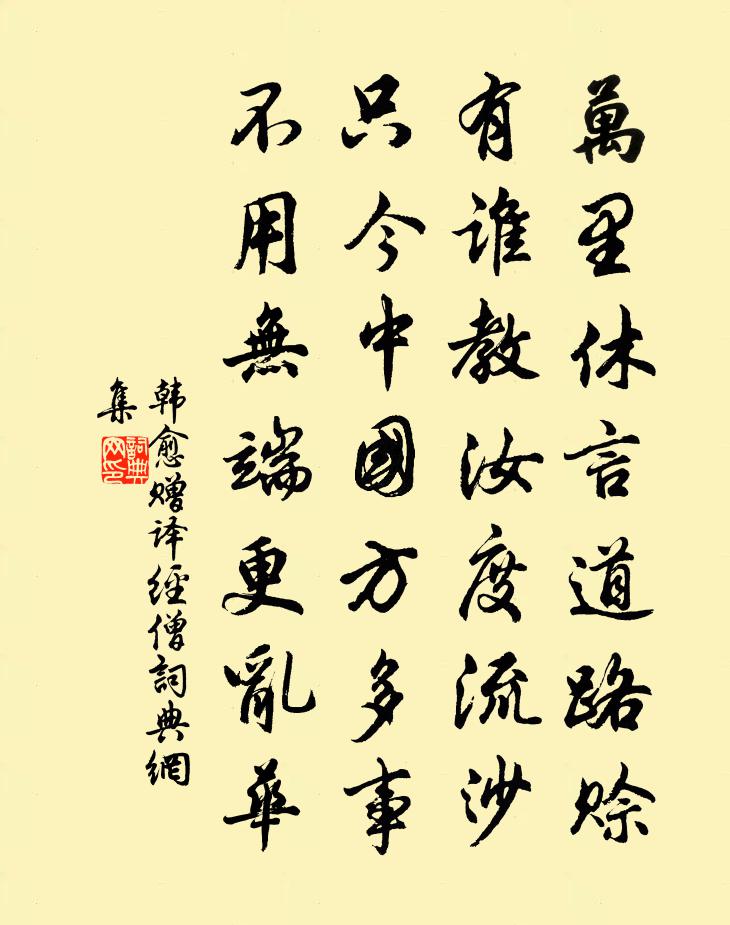 萬里休言道路赊
有谁教汝度流沙
只今中國方多事
不用無端更亂華
韩愈赠译经僧詞典網
集
詞典
网印